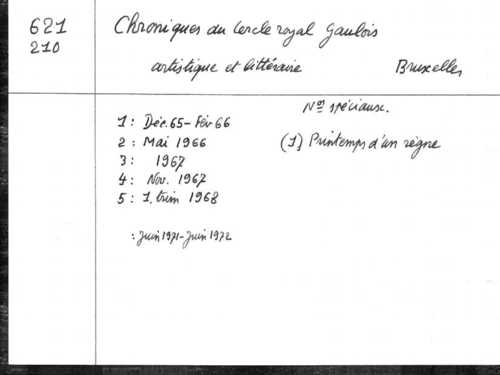 621
210
Chroniques du Cercle royal Gaulois
artistique et littéraire Bruxelles
Nos spéciaux.
1 : Déc. 65 - Fév 66
2 : Mai 1966
(1) Printemps d'un règne
3 : 1967
4 : Nov. 1967
5 : 1. trim 1968
: Juin 1971 - Juin 1972